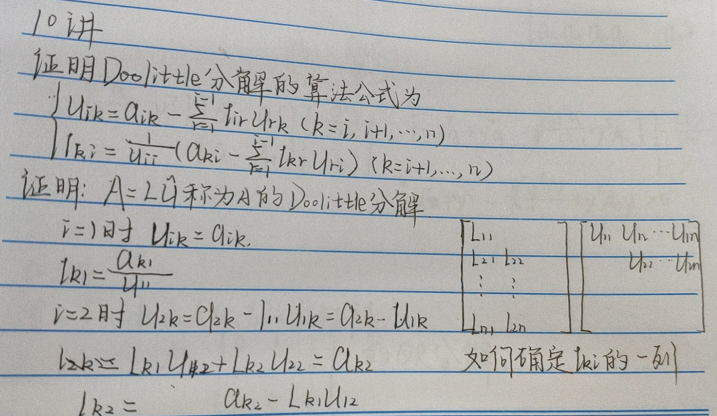 10讲
证明Doolittle分解的算法公式为
{ u_{ik} = a_{ik} - \sum_{r=1}^{i-1} l_{ir} u_{rk} (k=i, i+1, ..., n)
l_{ki} = \frac{1}{u_{ii}} (a_{ki} - \sum_{r=1}^{i-1} l_{kr} u_{ri}) (k=i+1, ..., n)
证明: A=LÛ称为A的Doolittle分解
i=1时 u_{ik} = a_{ik}.
l_{k1} = \frac{a_{k1}}{u_{11}}
i=2时 u_{2k} = a_{2k} - l_{11} u_{1k} = a_{2k} - u_{1k}
l_{2k} = L_{k1} u_{12} + L_{k2} u_{22} = a_{k2}
l_{k2} = a_{k2} - L_{k1} u_{12}
[ L_{11}
L_{21} L_{22}
⋮ ⋮
L_{n1} L_{2n} ]
[ u_{11} u_{12} ... u_{1n}
u_{22} ... u_{2n} ]
如何确定l_{ki}的一列